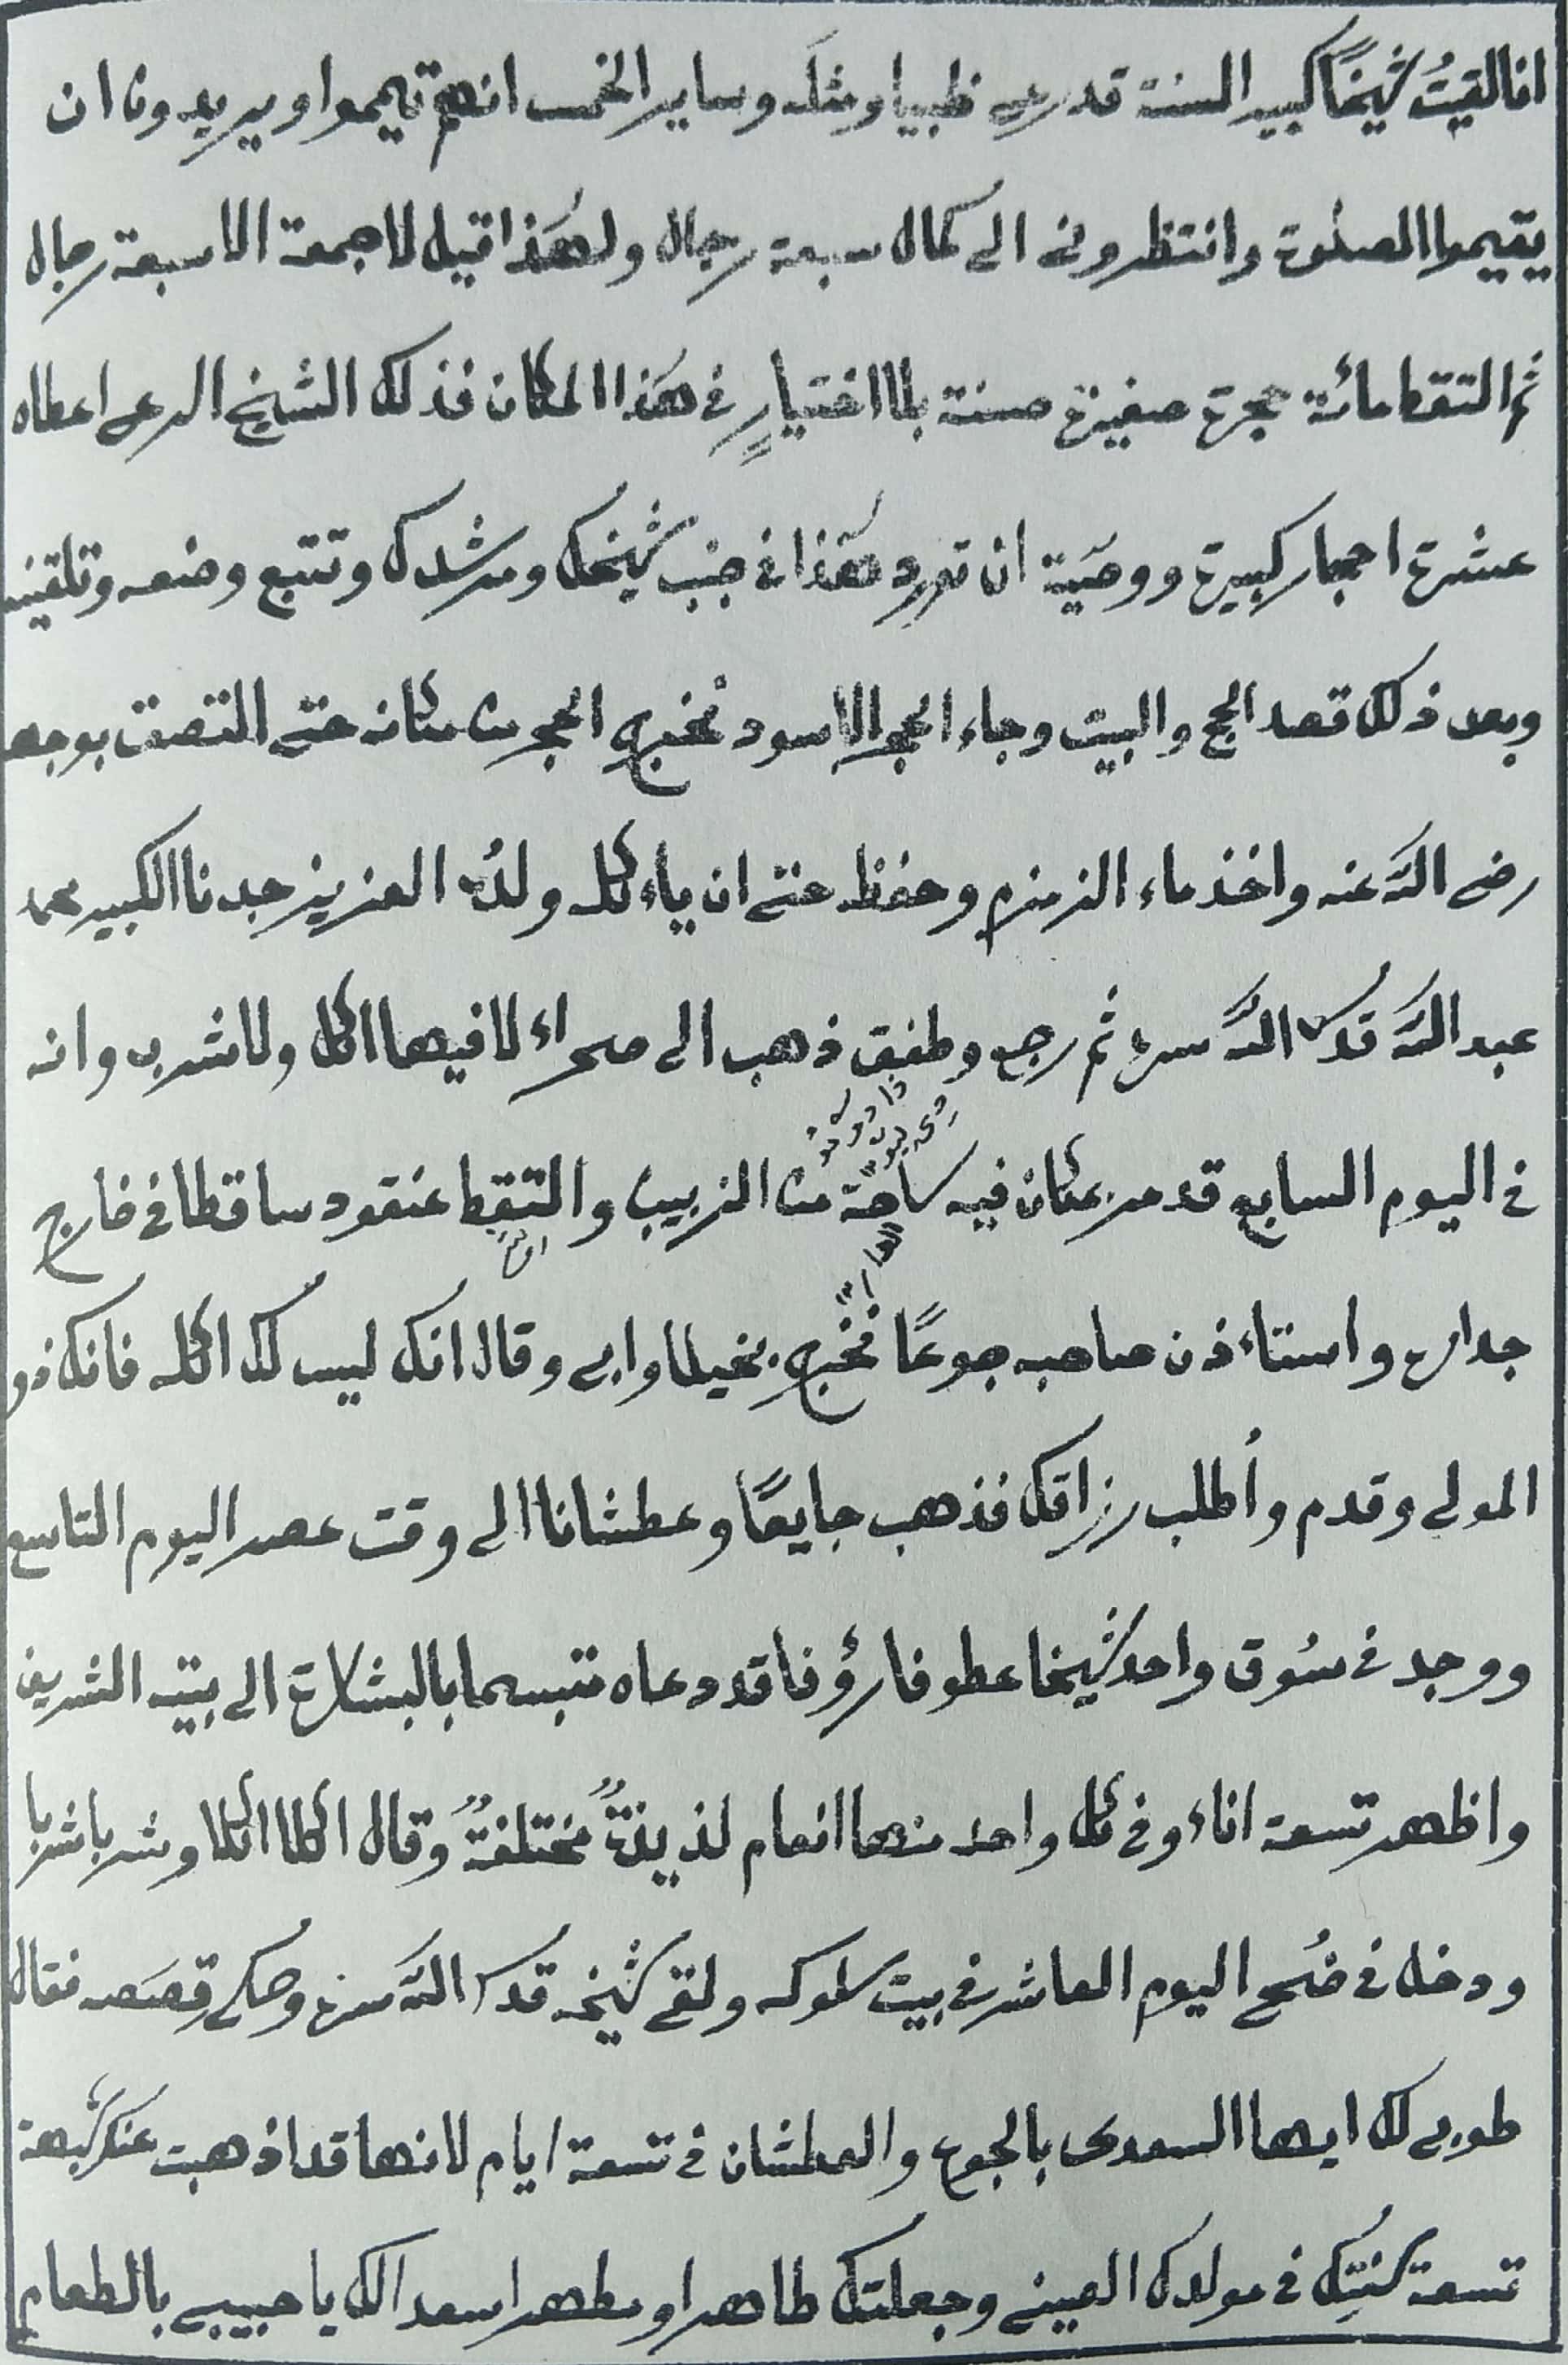 انا لقيتُ شيخًا كبير السنة قد رعى ظبيا ومثله وساير الخمس انهم تيممو او يريدون ان
يقيموا الصلوة وانتظروني الى كمال سبعة رجال ولهذا قيل لا جمعة الا سبعة رجال
ثم التقط مائة حجرة صغيرة حسنة بلا اختيارٍ في هذا المكان فذلك الشيخ الرعى اعطاه
عشرة احجار كبيرة ووصّية ان تورد هذا في جنب شيخك ومرشدك وتتبع وضعه وتلقينه
وبعد ذلك قصد الحج والبيت وجاء الحجر الاسود فخرج الحجر من مكانه حتى التصق بوجهه
رضى الله عنه واخذ ماء الزمزم وحفظ حتى ان ياءكله ولدُه العزيز جدنا الكبير محمد
عبد الله قدس الله سره ثم رجع وطفق ذهب الى صحراء لا فيها اكل ولا شرب وانه
في اليوم السابع قد مر بمكان فيه ساحة من الزبيب والتقط عنقود ساقطا في خارج
جداره واستاءذن صاحبه جوعًا فخرج بخيلا وابى وقال انك ليس لك اكله فانك ذو
المولى وقدم وأطلب رزاقك فذهب جايعًا وعطشانا الى وقت عصر اليوم التاسع
ووجد في سُوق واحد شيخا عطوفا رؤفا قد دعاه متبسما بالبشارة الى بيته الشريف
واظهر تسعة اناء وفي كل واحد منها انعام لذيذةٌ مختلفةٌ وقال اكلا اكلا وشربا شربا
ودخل في ضُحى اليوم العاشر في بيت سلوكه ولقى شيخه قدس الله سره وحكى قِصَصه فقال
طوبى لك ايها السعدى بالجوع والعطشان في تسعة ايام لانها قد اذهبت عنك شبهة
تسعة كنتِك في مولدك العيني وجعلتك طاهرا ومطهرا سعدا لك يا حبيبى بالطعام